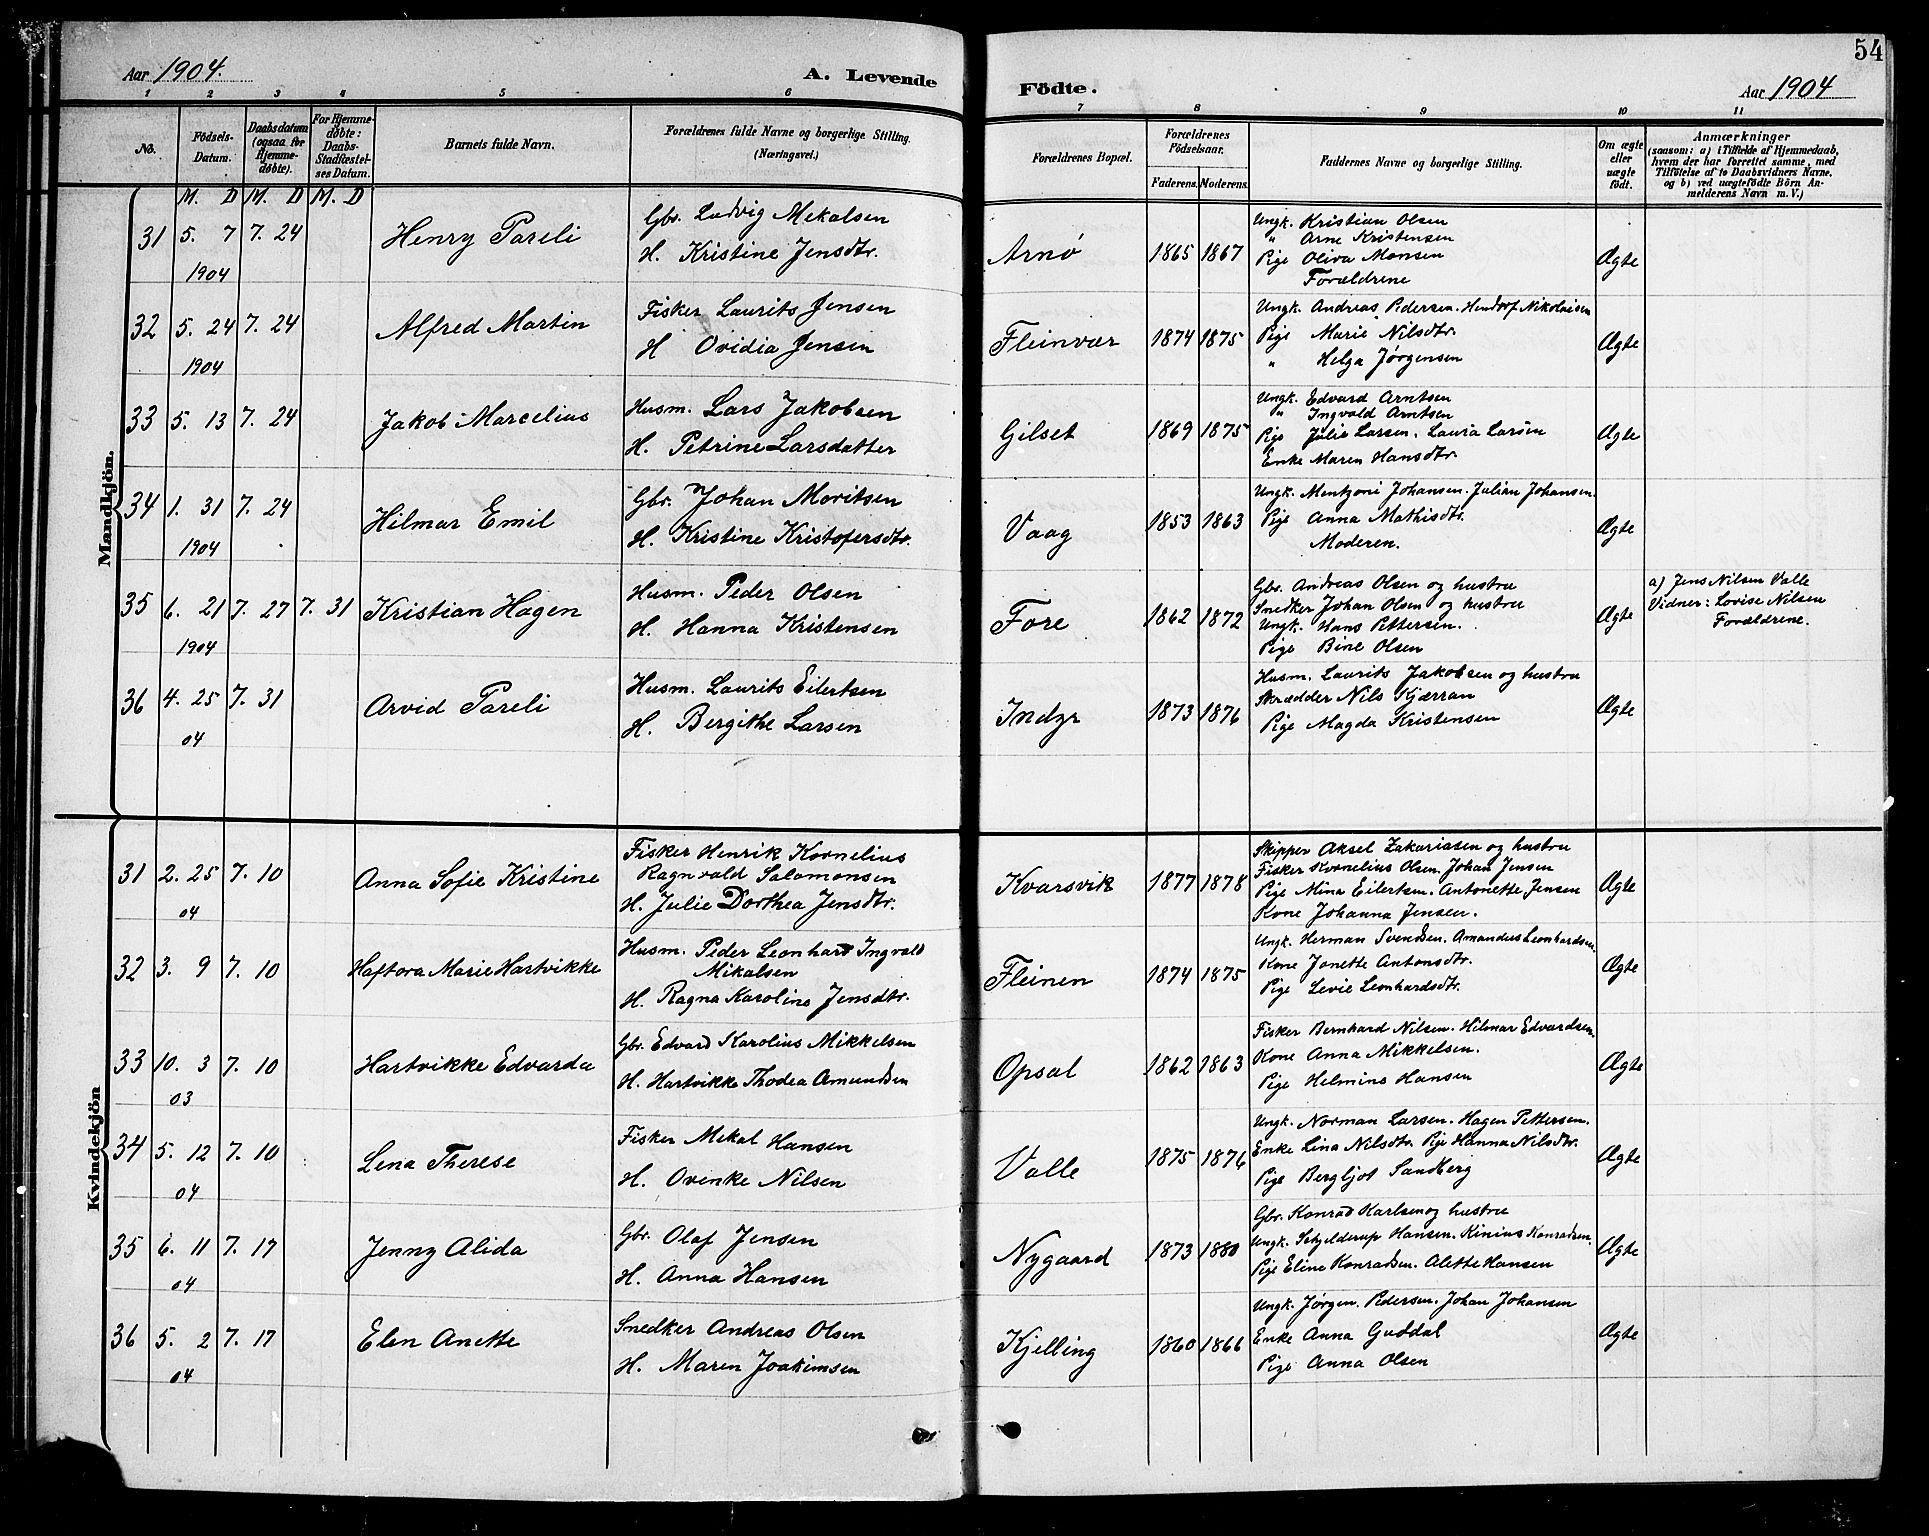 54
Aar 1904.
A. Levende
Födte.
Aar 1904
1 2 3 4 5 6 7 8 9 10 11
No.
Födsels-
Datum.
Daabsdatum
(ogsaa for
Hjemme-
døbte).
For Hjemme-
døbte:
Daabs-
Stadfæstel-
ses Datum.
Barnets fulde Navn.
Forældrenes fulde Navne og borgerlige Stilling.
(Næringsvei.)
Forældrenes Bopæl.
Forældrenes
Födselsaar.
Faderens. Moderens.
Faddernes Navne og borgerlige Stilling.
Om ægte
eller
uægte
født.
Anmærkninger
(saasom: a) i Tilfælde af Hjemmedaab,
hvem der har forrettet samme, med
Tilføielse af to Daabsvidners Navne,
og b) ved uægtefødte Börn An-
melderens Navn m. V.)
M. D M. D M. D
Mandkjön.
31 5. 7 7. 24
1904
Henry Pareli
Gbr. Ludvig Mekalsen
H. Kristine Jensdtr.
Arnø
1865 1867
Ungk. Kristian Olsen
" Arne Kristensen
Pige Oliva Monsen
Forældrene
Ægte
32 5. 24 7. 24
1904
Alfred Martin
Fisker Laurits Jensen
H Ovidia Jensen
Fleinvær
1874 1875
Ungk. Andreas Pedersen. Hendrof Nikolaisen
Pige Marie Nilsdtr.
" Helga Jørgensen
Ægte
33 5. 13 7. 24
Jakob Marcelius
Husm. Lars Jakobsen
H. Petrine Larsdatter
Gilset
1869 1875
Ungk. Edvard Arntsen
" Ingvald Arntsen
Pige Julie Larsen. Laura Larsen
Enke Maren Hansdtr.
Ægte
34 1. 31 7. 24
1904
Hilmar Emil
Gbr. Johan Moritsen
H. Kristine Kristofersdtr.
Vaag
1853 1863
Ungk. Mentzoni Johansen. Julian Johansen.
Pige Anna Mathisdtr.
Moderen.
Ægte
35 6. 21 7. 27 7. 31
1904
Kristian Hagen
Husm. Peder Olsen
H. Hanna Kristensen
Fore
1862 1872
Gbr. Andreas Olsen og hustru
Snedker Johan Olsen og hustru
Ungk. Hans Pettersen.
Pige Bine Olsen
Ægte
a) Jens Nilsen Valle
Vidner: Lovise Nilsen
Forældrene.
36 4. 25 7. 31
04
Arvid Pareli
Husm. Laurits Eilertsen
H. Bergithe Larsen
Indyr
1873 1876
Husm. Laurits Jakobsen og hustru
Skrædder Nils Kjærran
Pige Magda Kristensen
Ægte
Kvindekjön
31 2. 25 7. 10
04
Anna Sofie Kristine
Fisker Henrik Kornelius
Ragnvald Salomonsen
H. Julie Dorthea Jensdtr.
Kvarsvik
1877 1878
Skipper Aksel Zakariasen og hustru
Fisker Kornelius Olsen. Johan Jensen
Pige Mina Eilertsen. Antonette Jensen
Kone Johanna Jensen.
Ægte
32 3. 9 7. 10
Haftora Marie Hartvikke
Husm. Peder Leonhard Ingvald
Mikalsen
H. Ragna Karoline Jensdtr.
Fleinen
1874 1875
Ungk. Herman Svendsen. Amandus Leonhardsen.
Kone Janette Antonsdtr.
Pige Levie Leonhardsdtr.
Ægte
33 10. 3 7. 10
03
Hartvikke Edvarda
Gbr. Edvard Karolius Mikkelsen
H. Hartvikke Thodea Amundsen
Opsal
1862 1863
Fisker Bernhard Nilsen. Hilmar Edvardsen.
Kone Anna Mikkelsen.
Pige Helmine Hansen
Ægte
34 5. 12 7. 10
04
Lena Therese
Fisker Mekal Hansen
H. Ovinke Nilsen
Valle
1875 1876
Ungk. Norman Larsen. Hagen Pettersen.
Enke Lina Nilsdtr. Pige Hanna Nilsdtr.
Pige Bergljot Sandberg
Ægte
35 6. 11 7. 17
04
Jenny Alida
Gbr. Olaf Jensen
H. Anna Hansen
Nygaard
1873 1880
Gbr. Konrad Karlsen og hustru
Ungk. Schjelderup Hansen. Kinius Konradsen.
Pige Eline Konradsen. Alette Hansen
Ægte
36 5. 2 7. 17
04
Elen Anette
Snedker Andreas Olsen
H. Maren Joakimsen
Kjelling
1860 1866
Ungk. Jørgen Pedersen. Johan Johansen
Enke Anna Guddal
Pige Anna Olsen
Ægte